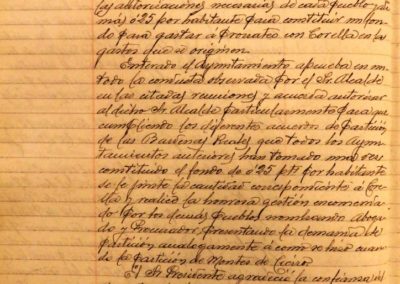 las autorizaciones necesarias de cada pueblo y de
más 0'25 por habitante para constituir un fon
do para gastar a prorrateo con Corella en los
gastos que se originen.
Enterado el Ayuntamiento aprueba en
todo la conducta observada por el Sr. Alcalde
en las citadas reuniones y acuerda autorizar
al dicho Sr. Alcalde particularmente para que
cumpliendo los diferentes acuerdos de partición
de las Bardenas Reales que todos los Ayun
tamientos anteriores han tomado una vez
constituido el fondo de 0'25 pts por habitante
se le firme la cantidad correspondiente a
y realice la honrosa gestión encomen
da por los demás pueblos nombrando Aboga
do y Procurador presentando la demanda de
partición analogamente a como se hizo cuan
do la partición de Montes de Cierzo.
El Sr. Presidente agradeció la confianza